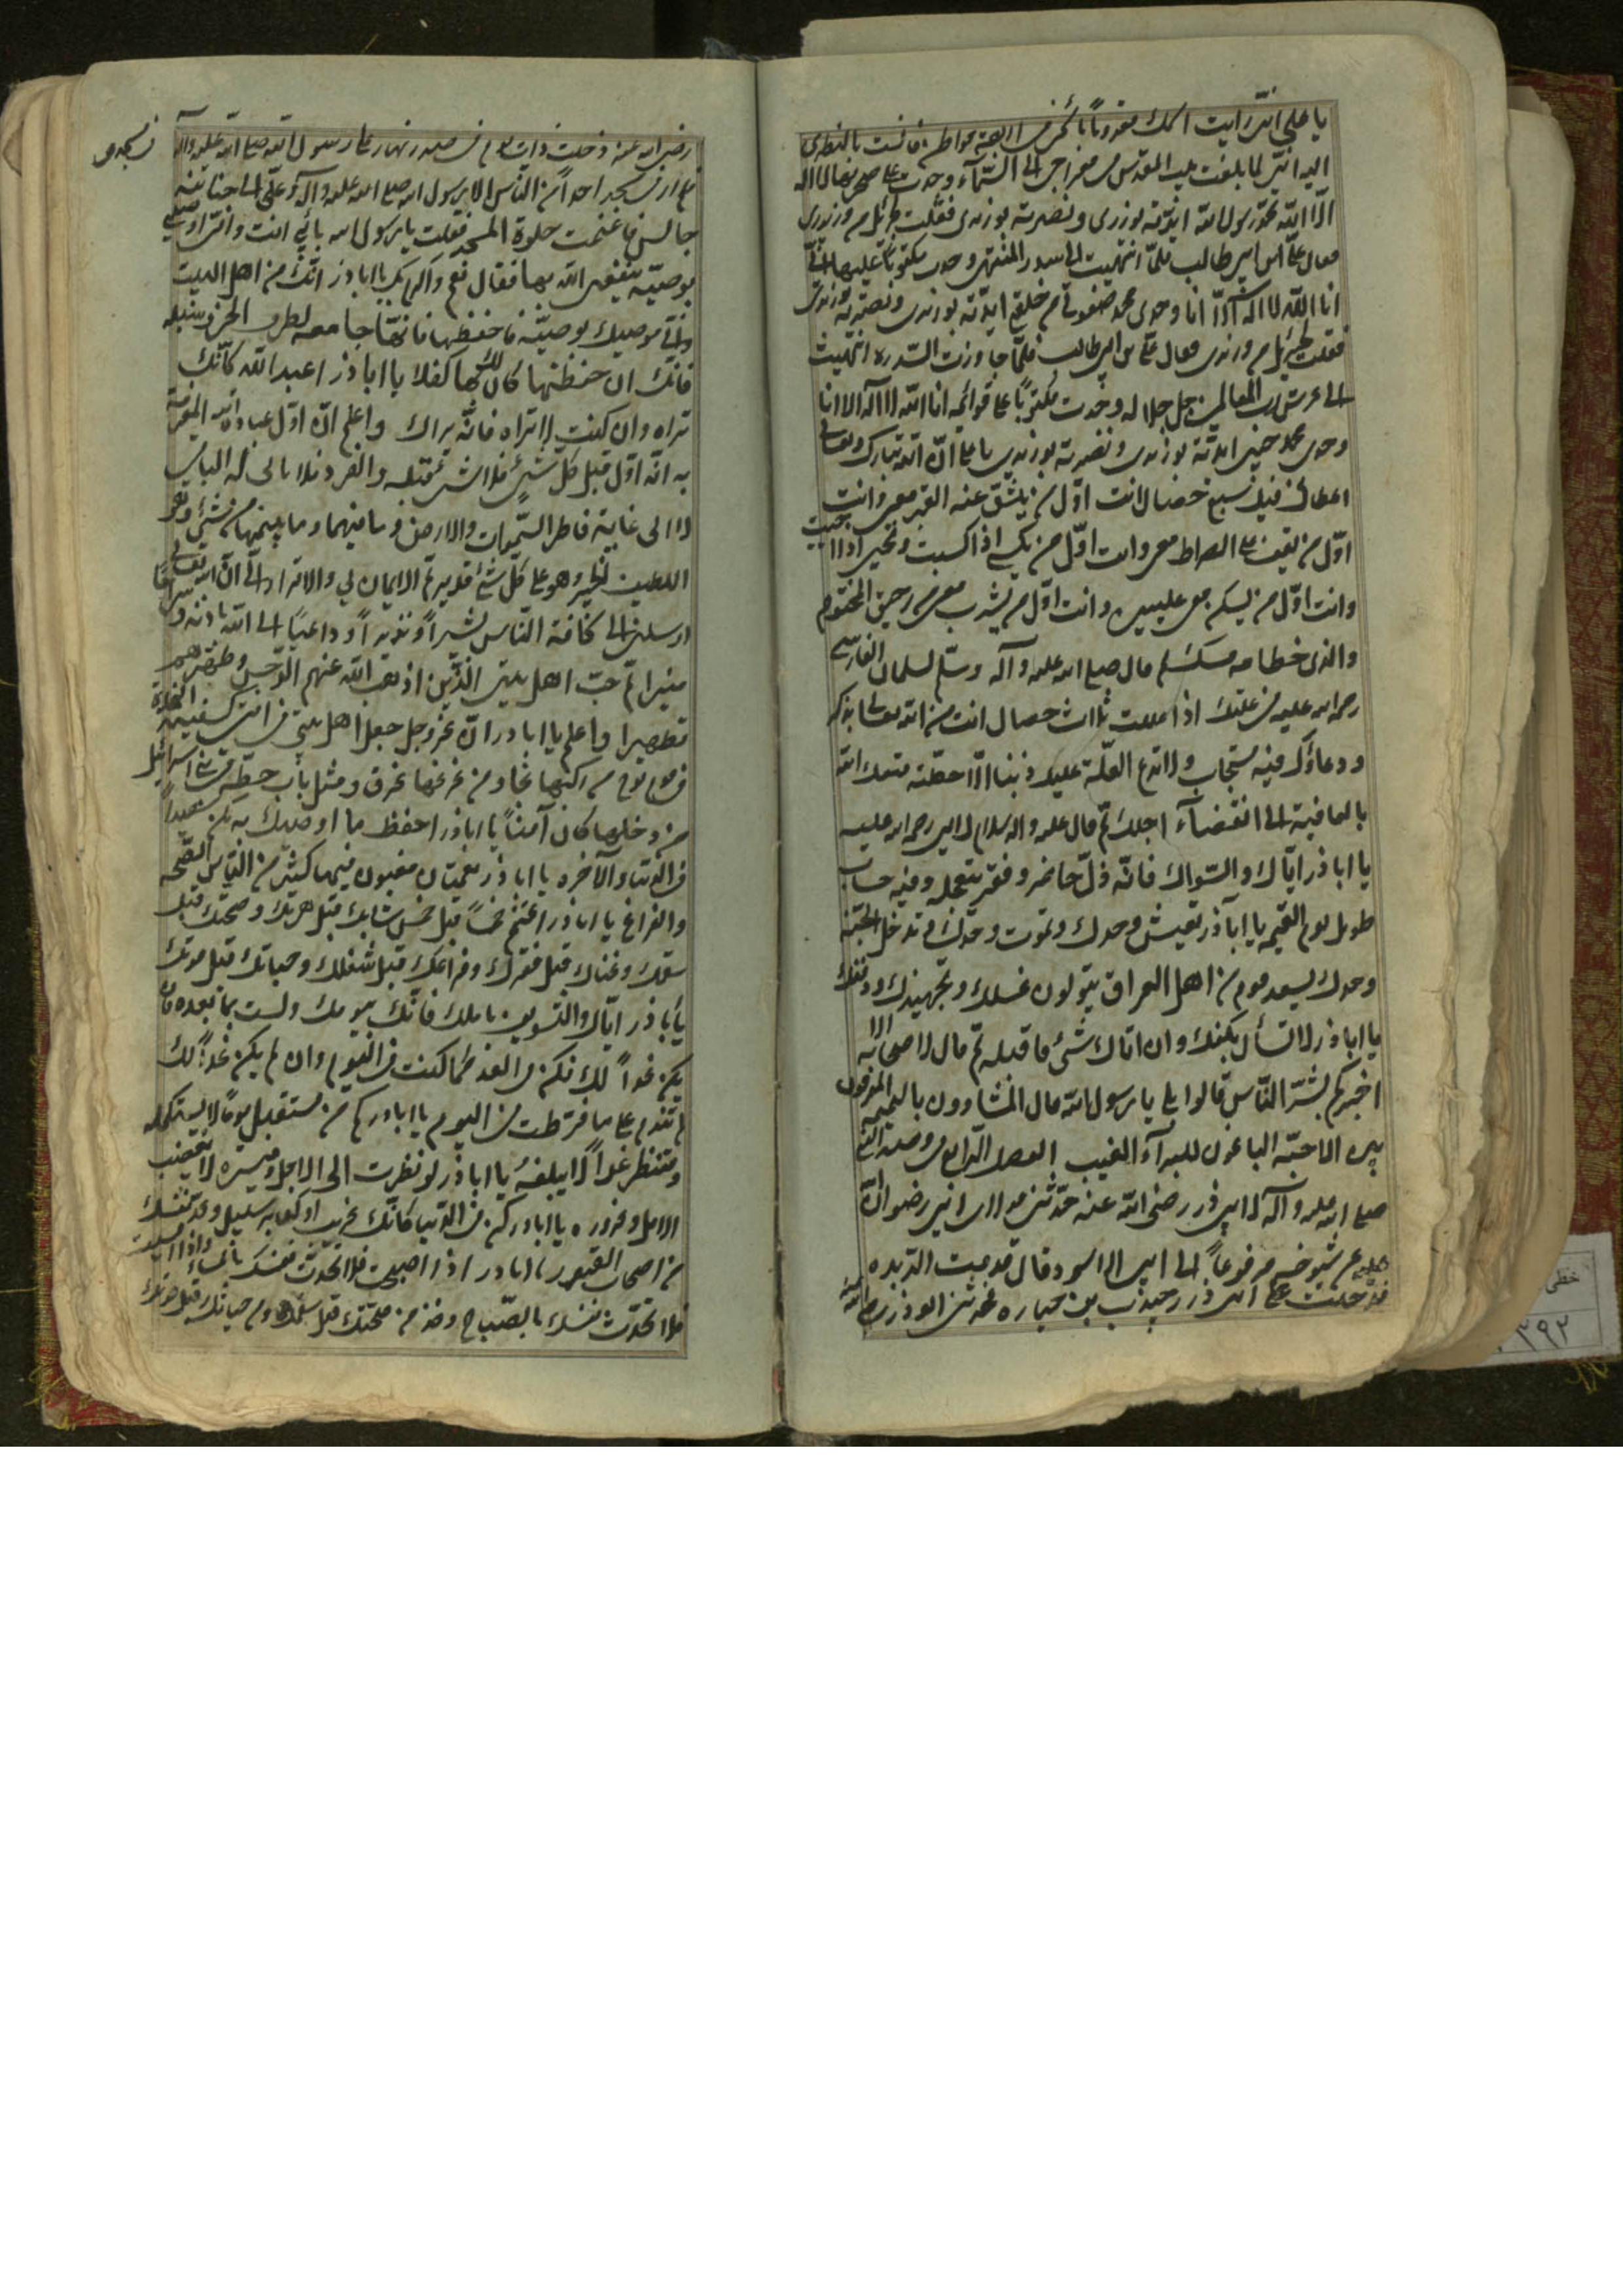 يا على انى رايت اسمك مقرونا باسمى فى اربعة مواطن فانست بالنظر
اليه انى لما بلغت بيت المقدس فى معراجى الى السمآء وجدت على صخرتها لا اله
الا الله محمد رسول الله ايدته بوزيره ونصرته بوزيره فقلت لجبرئيل من وزيرى
فقال على بن ابى طالب فلما انتهيت الى سدرة المنتهى وجدت مكتوبا عليها انى
انا الله لا اله الا انا وحدى محمد صفوتى من خلقى ايدته بوزيره ونصرته بوزيره
فقلت لجبرئيل من وزيرى فقال على بن ابى طالب فلما جاوزت السدرة انتهيت
الى عرش رب العالمين جل جلاله وجدت مكتوبا على قوائمه انا الله لا اله الا انا
وحدى محمد حبيبى ايدته بوزيره ونصرته بوزيره يا على ان الله تبارك وتعالى
اعطانى فيك سبع خصال انت اول من ينشق عنه القبر معى وانت
اول من يقف على الصراط معى وانت اول من يكسى اذا كسيت ويحيى اذا حييت
وانت اول من يسكن معى عليين وانت اول من يشرب معى من رحيق المختوم
والذى ختامه مسك ثم قال صلى الله عليه وآله وسلم لسلمان الفارسى
رحمة الله عليه فى علتك اذا عللت ثلاث خصال انت من الله تعالى بذكر
ودعاؤك فيه مستجاب ولا تدع العلة عليك ذنبا الا حطته متعك الله
بالعافية الى انقضآء اجلك ثم قال عليه وآله السلام لابى ذر رحمة الله عليه
يا اباذر اياك والسؤال فانه ذل حاضر وفقر تتعجله وفيه حساب
طويل يوم القيمه يا اباذر تعيش وحدك وتموت وحدك وتدخل الجنة
وحدك يسعد قوم من اهل العراق يتولون غسلك وتجهيزك ودفنك
يا اباذر لا تسأل بكفك وان اتاك شئ فاقبله ثم قال لاصحابه الا
اخبركم بشر الناس قالوا بلى يا رسول الله قال المشاؤون بالنميمه المفرقون
بين الاحبة الباغون للبرآء العيب الفصل الرابع فى وصية النبى
صلى الله عليه وآله لابى ذر رضى الله عنه حدثنى مولاى ابى رضوان الله
عليه عن شيوخه مرفوعا الى ابى الاسود قال قدمت الربذه
فدخلت على ابى ذر جندب بن جناده فحدثنى ابوذر
رضى الله عنه دخلت ذات يوم فى صدر نهاره على رسول الله صلى الله عليه وآله فى مسجده
فلم ار فى المسجد احدا من الناس الا رسول الله صلى الله عليه وآله وعلى الى جنابه
جالس فاغتنمت خلوة المسجد فقلت يا رسول الله بابى انت وامى اوصنى
بوصية ينفعنى الله بها فقال نعم واكرم بك يا اباذر انك من اهل البيت
وانى موصيك بوصية فاحفظها فانها جامعة لطرق الخير وسبله
فانك ان حفظتها كان لك بها كفلا يا اباذر اعبد الله كانك
تراه وان كنت لا تراه فانه يراك واعلم ان اول عبادة الله المعرفة
به انه اول قبل كل شئ فلا شئ قبله والفرد فلا ثانى له الباقى
لا الى غاية فاطر السموات والارض وما فيهما وما بينهما من شئ وهو
اللطيف الخبير وهو على كل شئ قدير ثم الايمان بى والاقرار ان الله تعالى
ارسلنى الى كافة الناس بشيرا ونذيرا وداعيا الى الله باذنه وسراجا
منيرا ثم حب اهل بيتى الذين اذهب الله عنهم الرجس وطهرهم
تطهيرا واعلم يا اباذر ان الله عز وجل جعل اهل بيتى فى امتى كسفينة النجاة
فى قوم نوح من ركبها نجا ومن رغب عنها غرق ومثل باب حطة فى بنى اسرائيل
من دخلها كان آمنا يا اباذر احفظ ما اوصيك به تكن سعيدا
فى الدنيا والآخره يا اباذر نعمتان مغبون فيهما كثير من الناس الصحة
والفراغ يا اباذر اغتنم خمسا قبل خمس شبابك قبل هرمك وصحتك قبل
سقمك وغناك قبل فقرك وفراغك قبل شغلك وحياتك قبل موتك
يا باذر اياك والتسويف باملك فانك بيومك ولست بما بعده فان
يكن غدا لك فكن فى الغد كما كنت فى اليوم وان لم يكن غدا لك
لم تندم على ما فرطت فى اليوم يا اباذر كم من مستقبل يوما لا يستكمله
ومنتظر غدا لا يبلغه يا اباذر لو نظرت الى الاجل ومسيره لابغضت
الامل وغروره يا اباذر كن فى الدنيا كانك غريب او كعابر سبيل وعد نفسك
من اصحاب القبور يا اباذر اذا اصبحت فلا تحدث نفسك بالمسآء واذا امسيت
فلا تحدث نفسك بالصباح وخذ من صحتك قبل سقمك ومن حياتك قبل موتك
خطى
٣٩٢